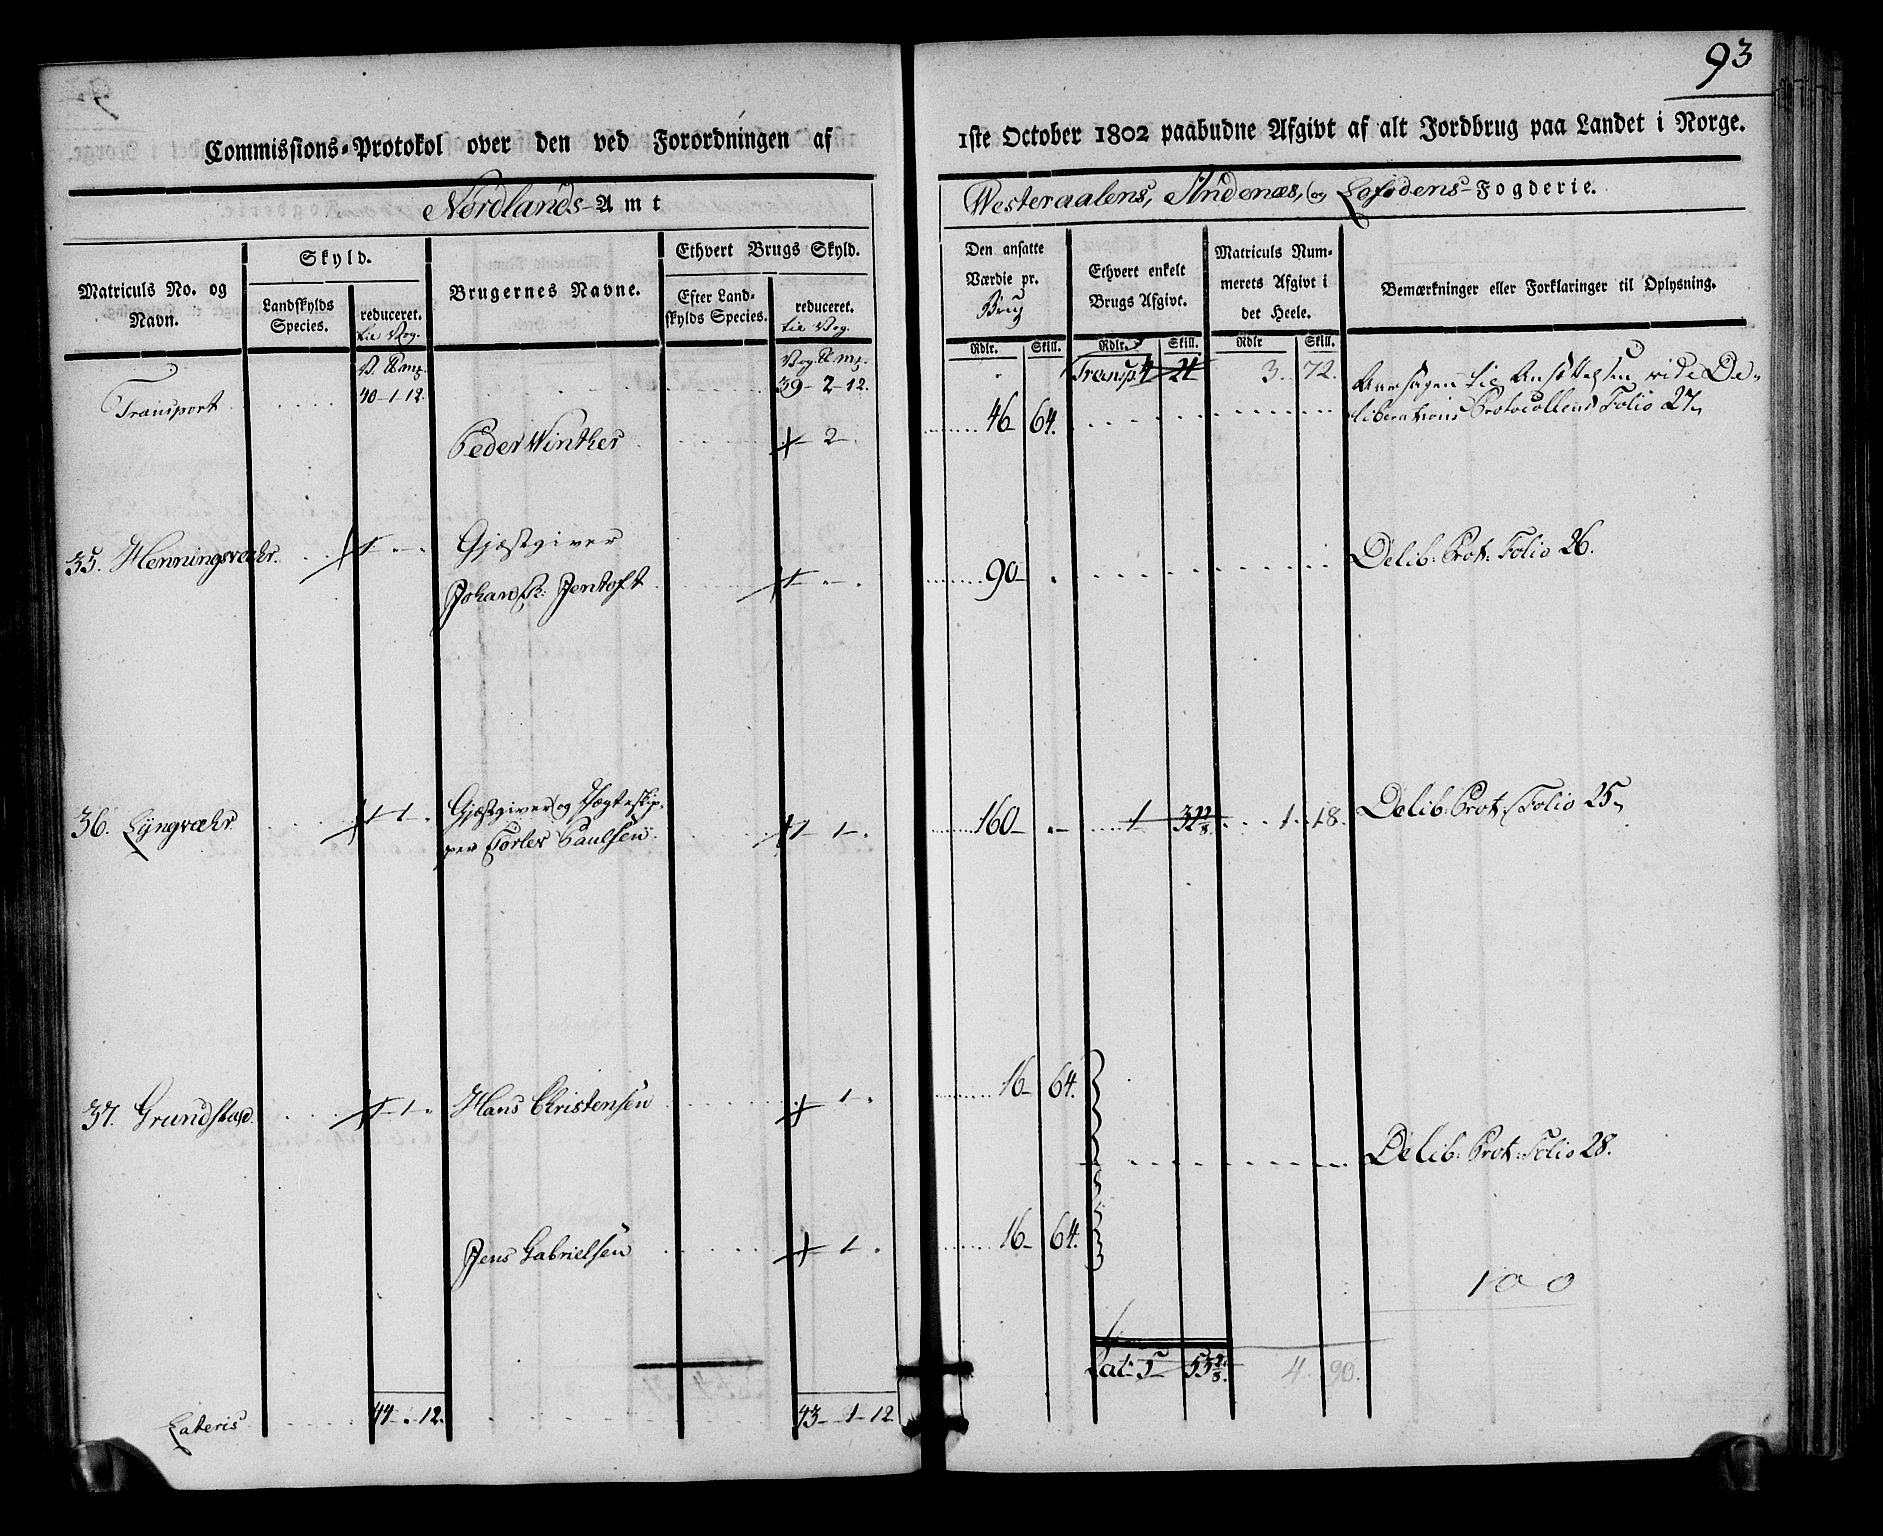 93
Commissions-Protokol over den ved Forordningen af
1ste October 1802 paabudne Afgivt af alt Jordbrug paa Landet i Norge.
Nordlands-Amt
Westeraalens, Andenæs, og Lofodens-Fogderie.
Matriculs No. og Navn.
Skyld.
Landskylds Species.
reduceret. til Vog.
Brugernes Navne.
Ethvert Brugs Skyld.
Efter Landskylds Species.
reduceret. til Vog.
Den ansatte Værdie pr. Brug
Ethvert enkelt Brugs Afgivt.
Matriculs Nummerets Afgivt i det Heele.
Bemærkninger eller Forklaringer til Oplysning.
Rdlr. Skill. Rdlr. Skill. Rdlr Skill.
Transport 40-1-12. 39-2-12. Transp 4 21 3. 72.
Peder Winther 2. 46 64.
Aarsagen til Ansættelsen vide De-
liberations Protocollens Folio 27,
35. Henningsvæhr. 1 Gjæstgiver
Johan Jentoft 1 90 Delib: Prot: Folio 26.
36. Lyngvæhr 1-1. Gjæstgiver og Jægteskip-
per Torler Paulsen. 1-1. 160 1 32 1. 18. Delib: Prot: Folio 25,
37. Grundstad. 1-1. Hans Christensen 1. 16 64.
Delib: Prot: Folio 28.
Jens Gabrielsen 1. 16 64.
100
Lat: 5 53 4. 90.
Lateris 44 . 12. 43-1-12